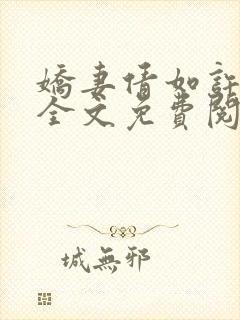 嬌妻情如許
全文免費閱
城無邪